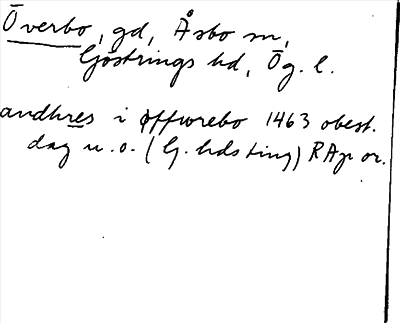 Överbo, gd, Åsbo sn,
Göstrings hd, Ög. l.
andhres i øffwrebo 1463 obest.
dag u. o. (G. hds ting) RAp or.